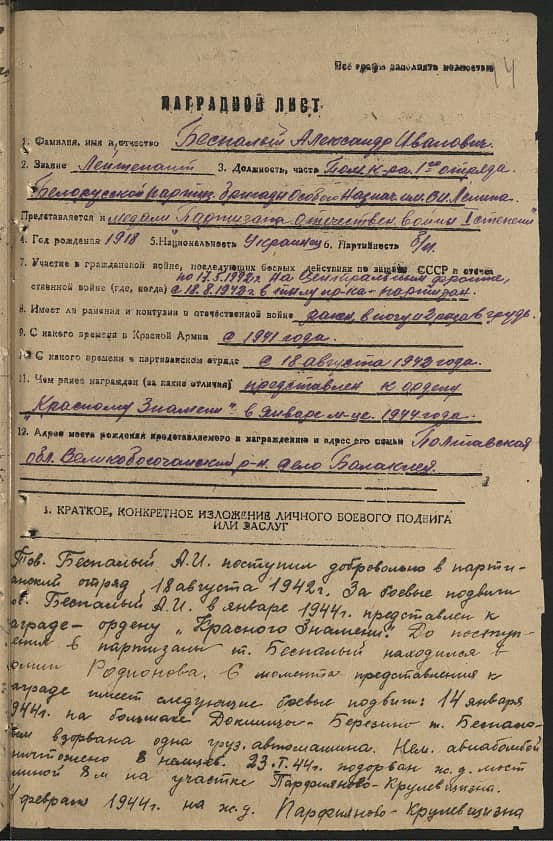 Все графы заполнять полностью
14
НАГРАДНОЙ ЛИСТ
1. Фамилия, имя и отчество Беспалый Александр Иванович.
2. Звание Лейтенант 3. Должность, часть Пом. к-ра 1го отряда
Белорусской партиз. бригады Особого Назнач. им. В.И. Ленина
Представляется к медали "Партизана отечествен. войны I степени"
4. Год рождения 1918 5. Национальность Украинец 6. Партийность б/п.
7. Участие в гражданской войне, последующих боевых действиях по защите СССР и отече
по 17.5.1942г. на Центральном фронте,
ственной войне (где, когда) с 18.8.1942г. в тылу пр-ка - партизан.
8. Имеет ли ранения и контузии в отечественной войне в ногу и 2 раза в грудь.
9. С какого времени в Красной Армии с 1941 года.
10. С какого времени в партизанском отряде с 18 августа 1942 года.
11. Чем ранее награжден (за какие отличия) представлен к ордену
"Красному Знамени" в январе м-це. 1944 года.
12. Адрес места рождения представляемого к награждению и адрес его семьи Полтавская
обл. р-н. село Балаклея.
1. КРАТКОЕ, КОНКРЕТНОЕ ИЗЛОЖЕНИЕ ЛИЧНОГО БОЕВОГО ПОДВИГА
ИЛИ ЗАСЛУГ
Тов. Беспалый А.И. поступил добровольно в парти-
занский отряд 18 августа 1942г. За боевые подвиги
ов. Беспалый А.И. в январе 1944г. представлен к
аграде - ордену "Красного Знамени". До поступ-
ения в партизаны т. Беспалый находился в
Родионова. С момента представления к
аграде имеет следующие боевые подвиги: 14 января
944г. на большаке Докшицы - Березино т. Беспало-
взорвана одна груз. автомашина. Нем. авиабомбой
ничтожено 8 немцев. 23.I.44г. подорван ж.д. мост
линой 8 м на участке Парфияново - Крулевщизна.
февраля 1944г. на ж.д. Парфияново - Крулевщизна